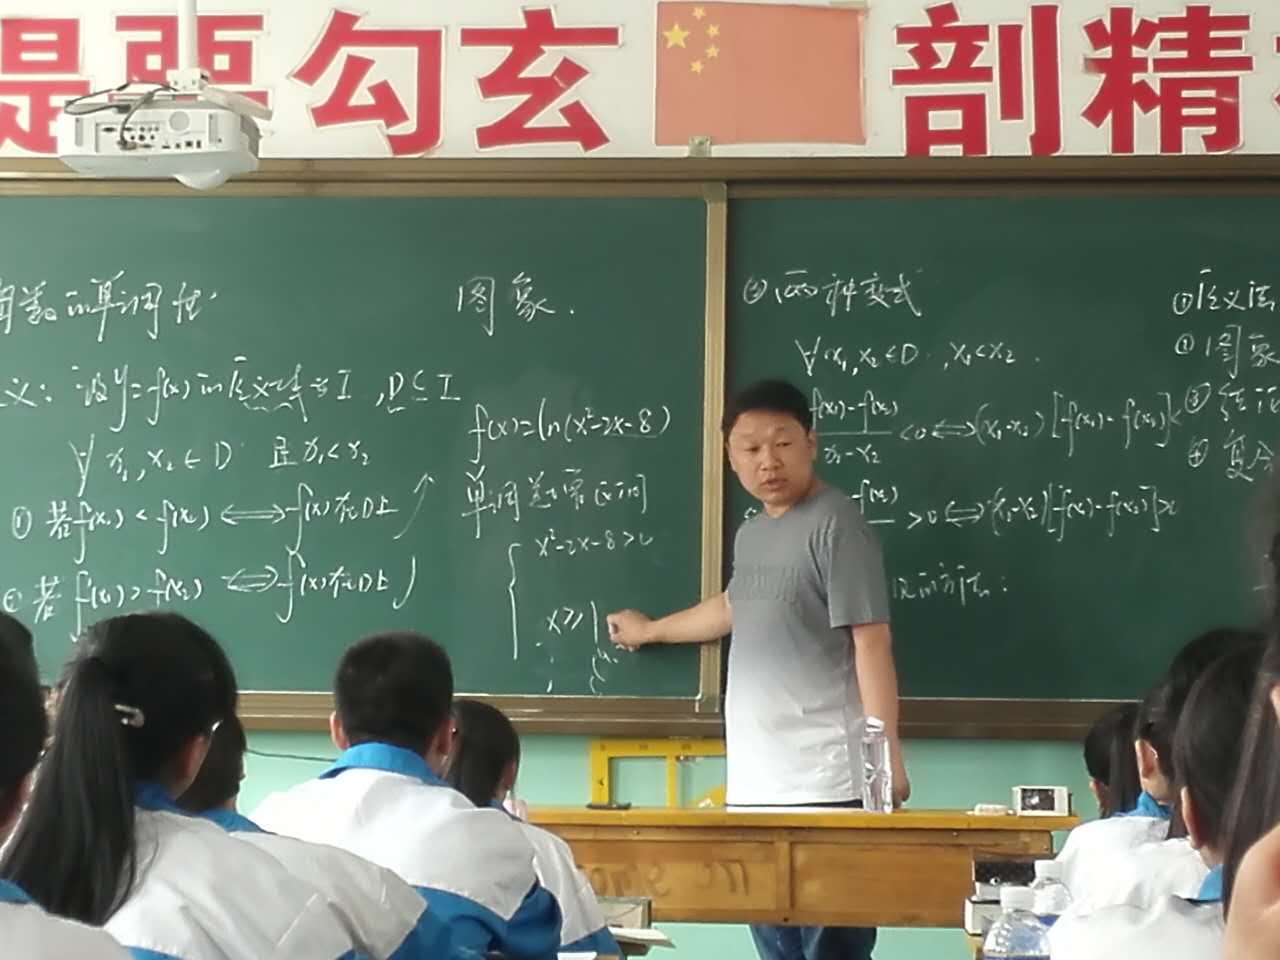 提要勾玄 剖精
函数的单调性
义：设y=f(x)的定义域为I，D⊆I
∀x₁,x₂∈D 且x₁<x₂
① 若f(x₁)<f(x₂)⟺f(x)在D上
② 若f(x₁)>f(x₂)⟺f(x)在D上
图象.
f(x)=ln(x²-2x-8)
单调
x²-2x-8>0
x≥1
② 两种变式
∀x₁,x₂∈D，x₁<x₂.
f(x₁)-f(x₂)
x₁-x₂
<0⟺(x₁-x₂)[f(x₁)-f(x₂)]<
-f(x₂)
>0⟺(x₁-x₂)[f(x₁)-f(x₂)]>0
的方法：
①定义法
②图象
③
④复合